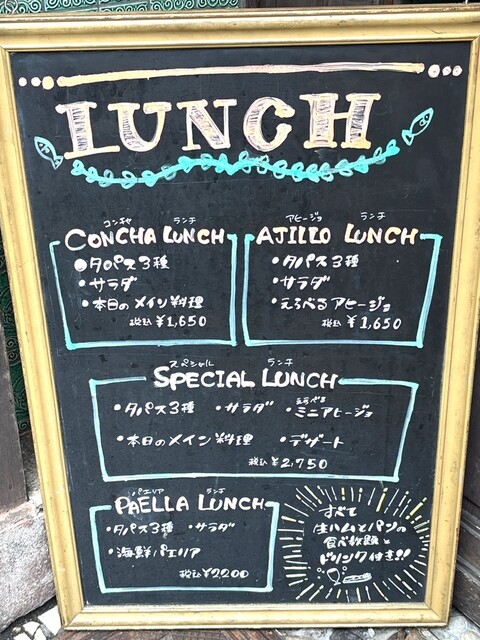 LUNCH
コンチャ ランチ
CONCHA LUNCH
・タパス3種
・サラダ
・本日のメイン料理
税込 ¥1,650
アヒージョ ランチ
AJILLO LUNCH
・タパス3種
・サラダ
・えらべるアヒージョ
税込 ¥1,650
スペシャル ランチ
SPECIAL LUNCH
えらべる
・タパス3種 ・サラダ ・ミニアヒージョ
・本日のメイン料理 ・デザート
税込 ¥2,750
パエリア ランチ
PAELLA LUNCH
・タパス3種 ・サラダ
・海鮮パエリア
税込 ¥2200
すべて
生ハムとパンの
食べ放題と
ドリンク付き!!